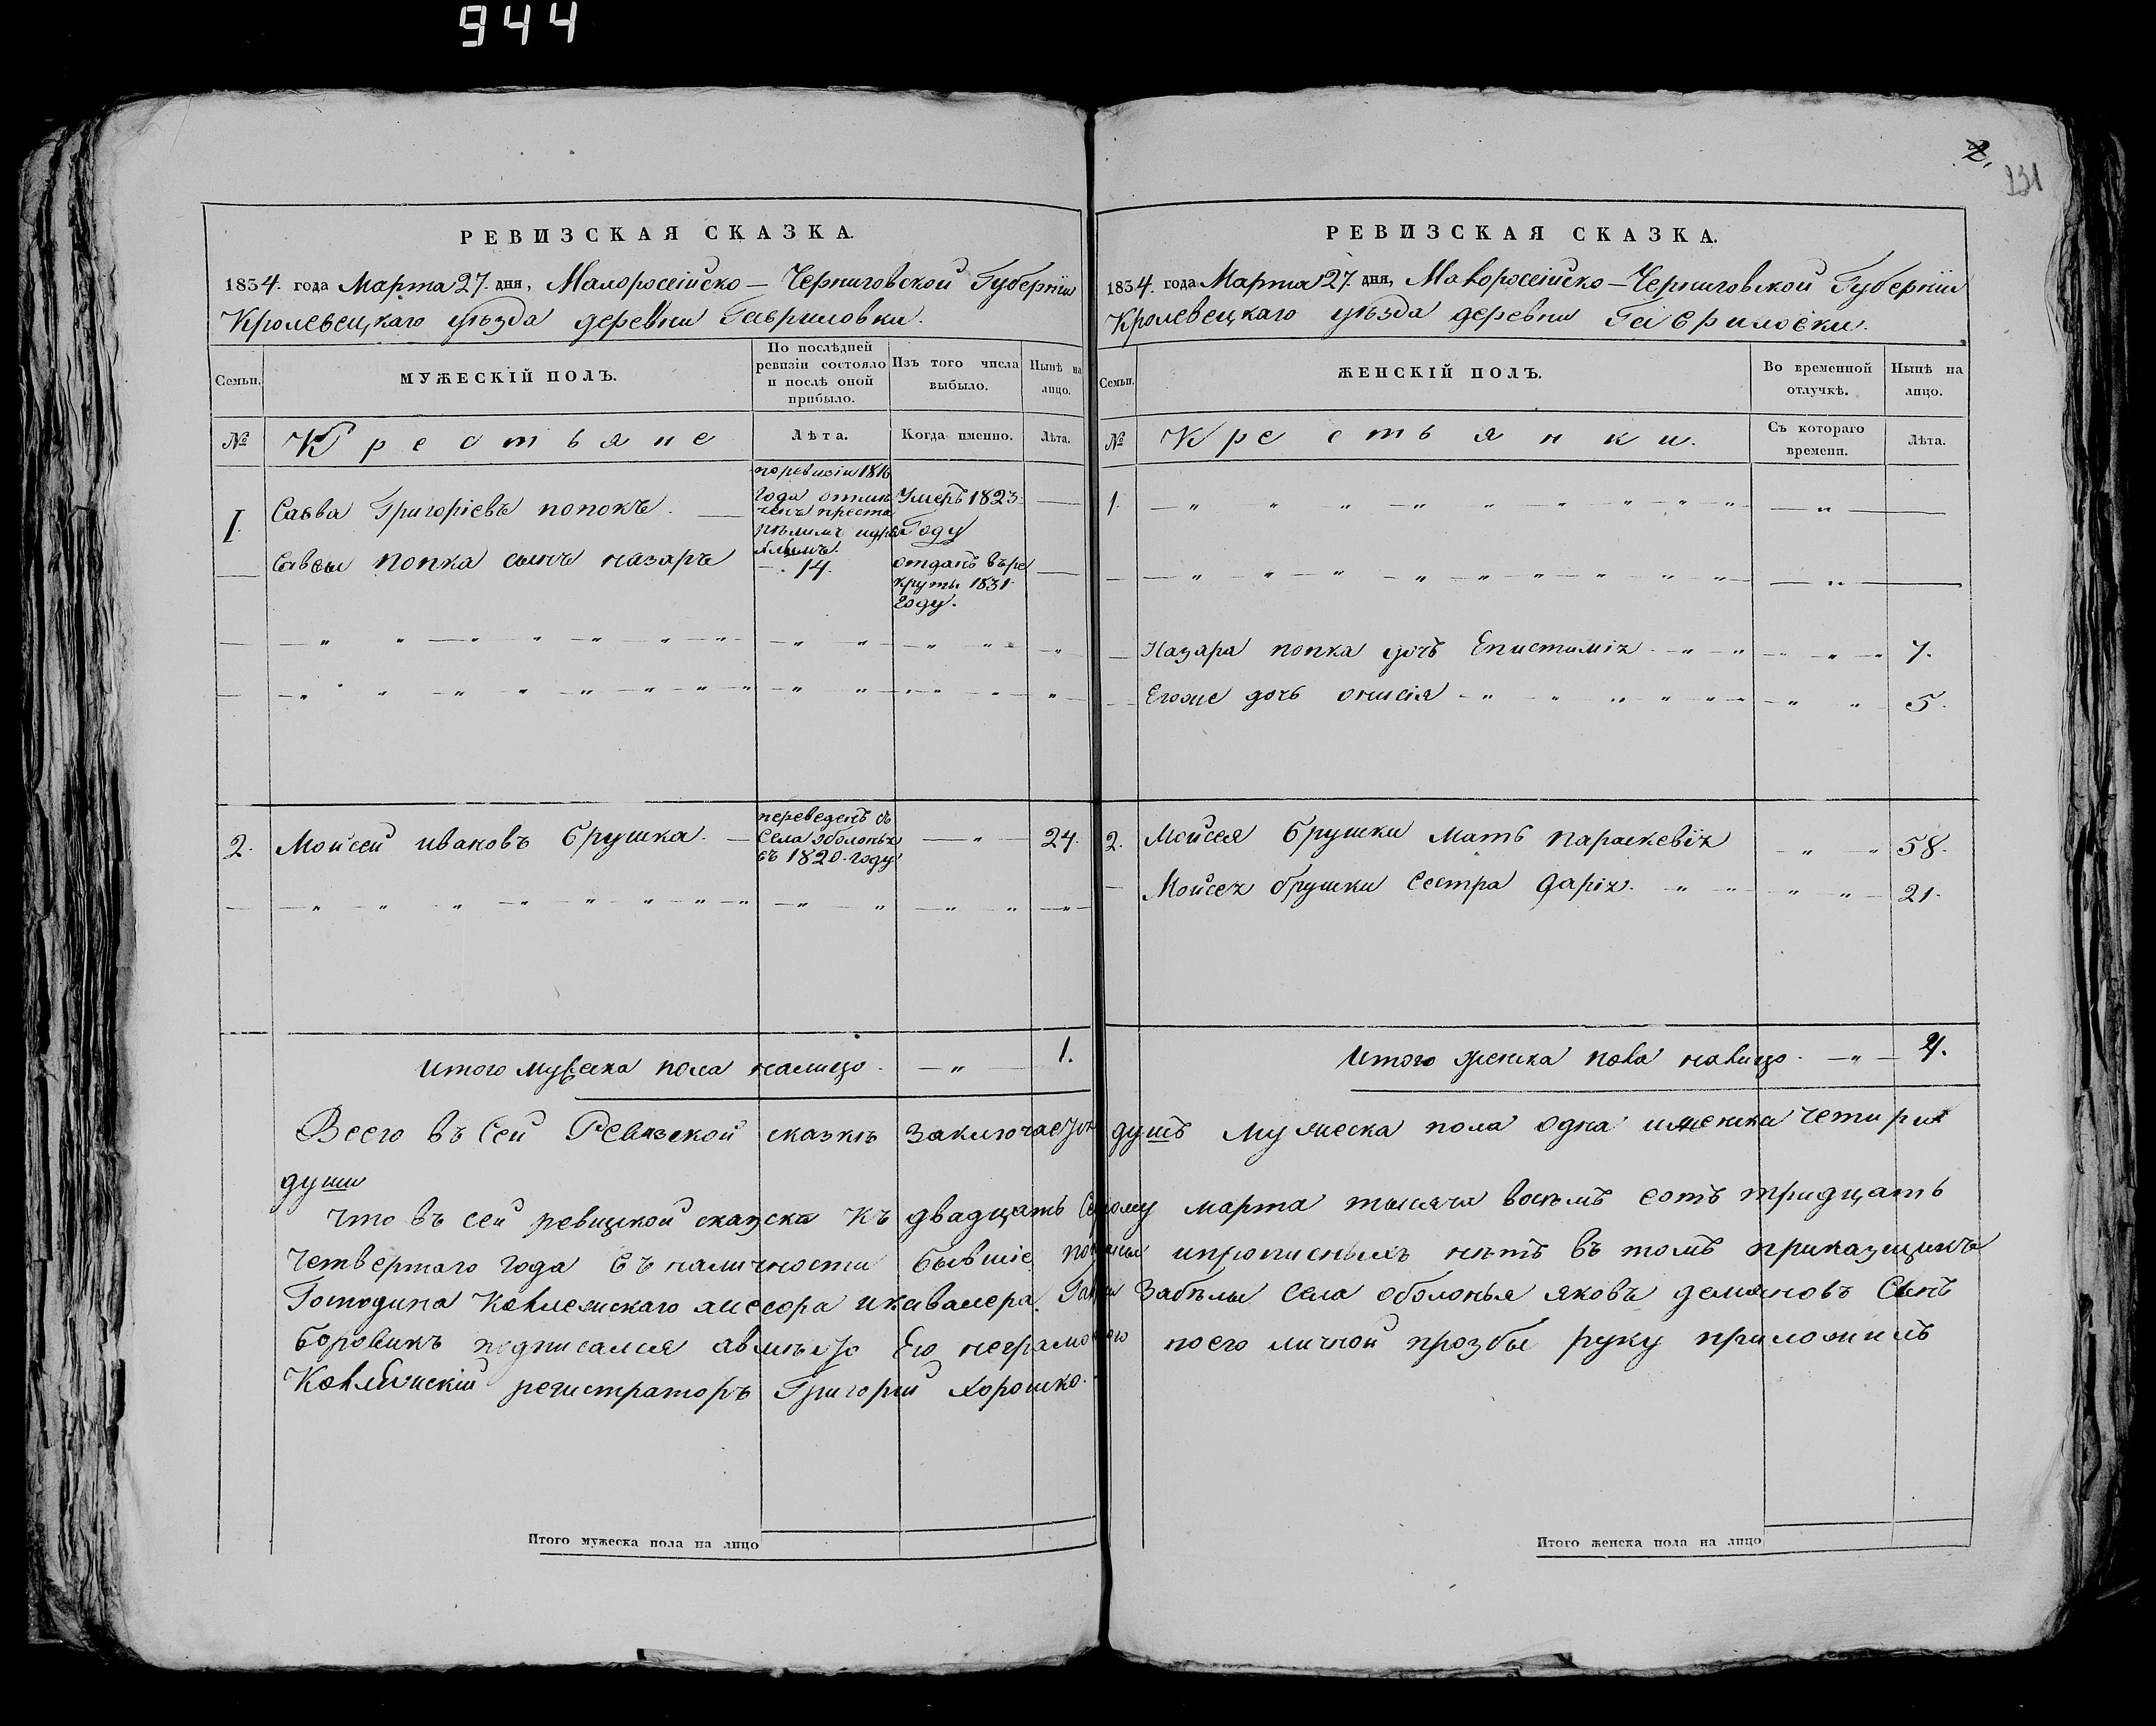 944
2.
231
РЕВИЗСКАЯ СКАЗКА.
1834. года Марта 27. дня, Малоросейско — Черниговской Губерніи
Кролевецкаго уѣзда деревни Гавриловки.
Семьи.
МУЖЕСКІЙ ПОЛЪ.
По послѣдней ревизіи состояло и послѣ оной прибыло.
Изъ того числа выбыло.
Нынѣ на лицо.
№
Крестьяне
Лѣта.
Когда именно.
Лѣта.
1. Савва Григоріевъ попокъ. —
по ревизіи 1816
года
Умеръ 1823
Году
— Саввы попка сынъ назаръ — 14.
отданъ въ ре
круты 1831
году.
2. Мойсей ивановъ брушка. —
переведенъ съ
села оболонья
въ 1820. году
— " — 24.
Итого мужеска пола налицо. — " — 1.
РЕВИЗСКАЯ СКАЗКА.
1834. года Марта 27. дня, Малоросейско — Черниговской Губерніи
Кролевецкаго уѣзда деревни Гавриловки.
Семьи.
ЖЕНСКІЙ ПОЛЪ.
Во временной отлучкѣ.
Нынѣ на лицо.
№
Крестьянки.
Съ котораго времени.
Лѣта.
1.
— Назара попка дочъ Епистимія 7.
— Егоже дочь онисія 5.
2. Мойсея брушки мать параскевія 58.
— Мойсея брушки сестра дарія. 21.
Итого женска пола налицо. — " — 4.
Всего въ сей Ревизской сказкѣ заключается душъ мужеска пола одна иженска четири
души
Что въ сей ревизской сказка къ двадцать седмому марта тысяча восѣмъ сотъ тридцать
четвертаго года въ наличности бывшіе показаны ипрописныхъ нѣтъ въ томъ приказщикъ
Господина Колежскаго ассесора икавалера Забѣлы села оболонья яковъ демяновъ Сынъ
боровикъ подписался авмѣсто его неграмотного поего личной прозбы руку приложилъ
Колежский регистраторъ Григорій Хорошко.
Итого мужеска пола на лицо
Итого женска пола на лицо